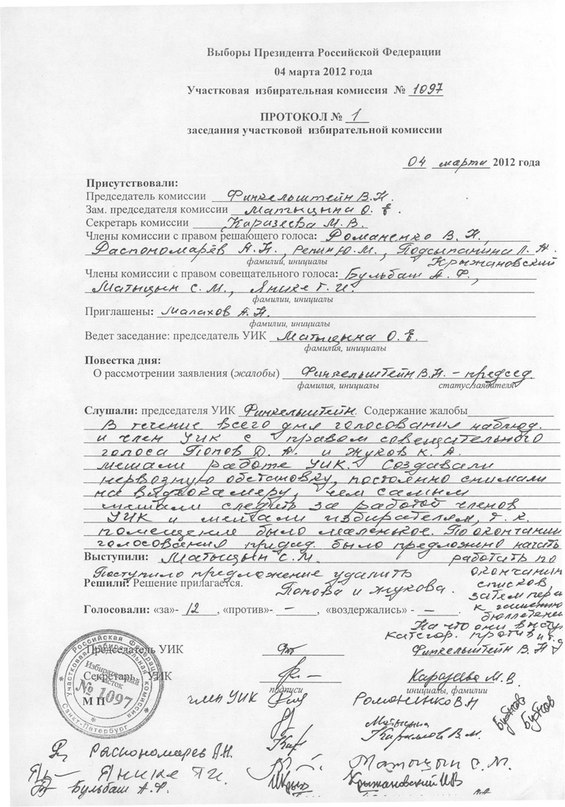 Выборы Президента Российской Федерации
04 марта 2012 года
Участковая избирательная комиссия № 1097
ПРОТОКОЛ № 1
заседания участковой избирательной комиссии
04 марта 2012 года
Присутствовали:
Председатель комиссии Финкельштейн В.Н.
Зам. председателя комиссии Матыцына О. Е.
Секретарь комиссии Каразеева М. В.
Члены комиссии с правом решающего голоса: Романенко В. Н.,
Распономарёв А.Н., Репин Ю.М., Подсыпанина Л. Н.
фамилии, инициалы Крыжановский
Члены комиссии с правом совещательного голоса: Бульбаш А. Ф.,
Матыцын С. М., Янике Г. И.
фамилии, инициалы
Приглашены: Малахов А. Н.
фамилии, инициалы
Ведет заседание: председатель УИК Матыцына О. Е.
фамилия, инициалы
Повестка дня:
О рассмотрении заявления (жалобы) Финкельштейн В.Н. - председ.
фамилия, инициалы статус заявителя
Слушали: председателя УИК Финкельштейн Содержание жалобы
В течение всего дня голосования наблюд.
и член УИК с правом совещательного
голоса Попов Д. А. и Жуков К. А.
мешали работе УИК. Создавали
нервозную обстановку, постоянно снимали
на видеокамеру, чем самым
мешали следить за работой членов
УИК и мешали избирателям, т. к.
помещение было маленькое. По окончании
голосования председ. было предложено начать
Выступили: Матыцын С. М. работать по
Поступило предложение удалить окончании
Решили: Решение прилагается. Попова и Жукова. списков,
затем пере
Голосовали: «за»- 12 , «против»- – , «воздержались» - –
к гашению
бюллетеней
На что они выступ
категор. против и т.д
Председатель УИК Финкельштейн В. Н
Секретарь УИК Каразеева М. В.
подписи инициалы, фамилии
М П
Российская Федерация
Участковая избирательная комиссия
Избирательный участок
№ 1097
Санкт-Петербург
член УИК Романенко В Н
Матыцина
В. М.
Бубнов
Бубнов
Распономарев А.Н. Матыцын С. М.
Янике Г.И. Крыжановский И.В
Бульбаш А. Ф.